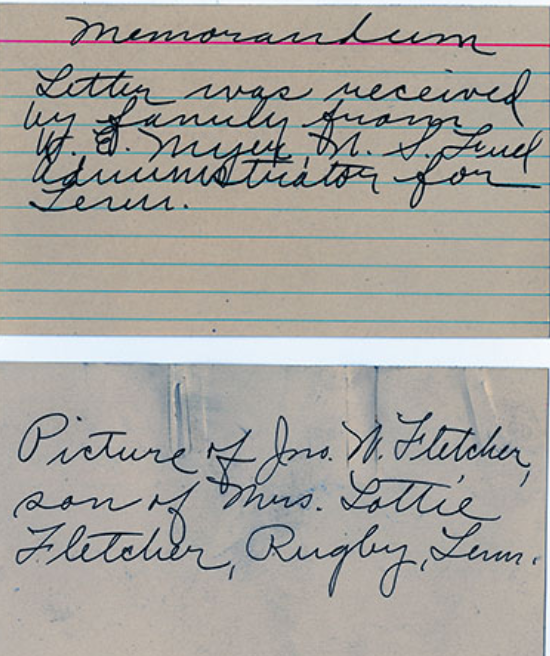 Memorandum
Letter was received
by family from
W. E. Myer, U. S. Fuel
Administrator for
Tenn.
Picture of Jno. W. Fletcher,
son of Mrs. Lottie
Fletcher, Rugby, Tenn.